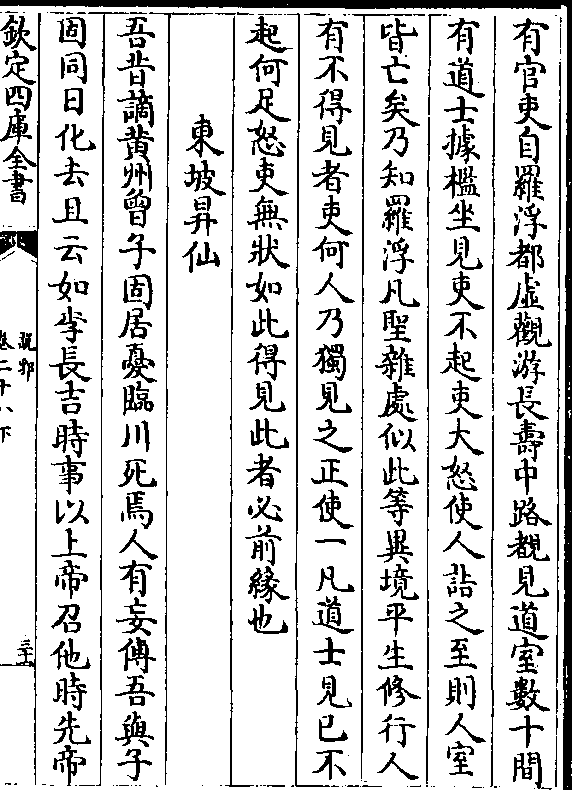 有官吏自羅浮都虛觀游長壽中路覩見道室數十間
有道士據檻坐見吏不起吏大怒使人詰之至則人室
皆亡矣乃知羅浮凡聖雜處似此等異境平生修行人
有不得見者吏何人乃獨見之正使一凡道士見已不
起何足怒吏無狀如此得見此者必前緣也
東坡昇仙
吾昔謫黄州曾子固居憂臨川死焉人有妄傳吾與子
固同日化去且云如李長吉時事以上帝召他時先帝
欽定四庫全書
說郛
卷二十八下